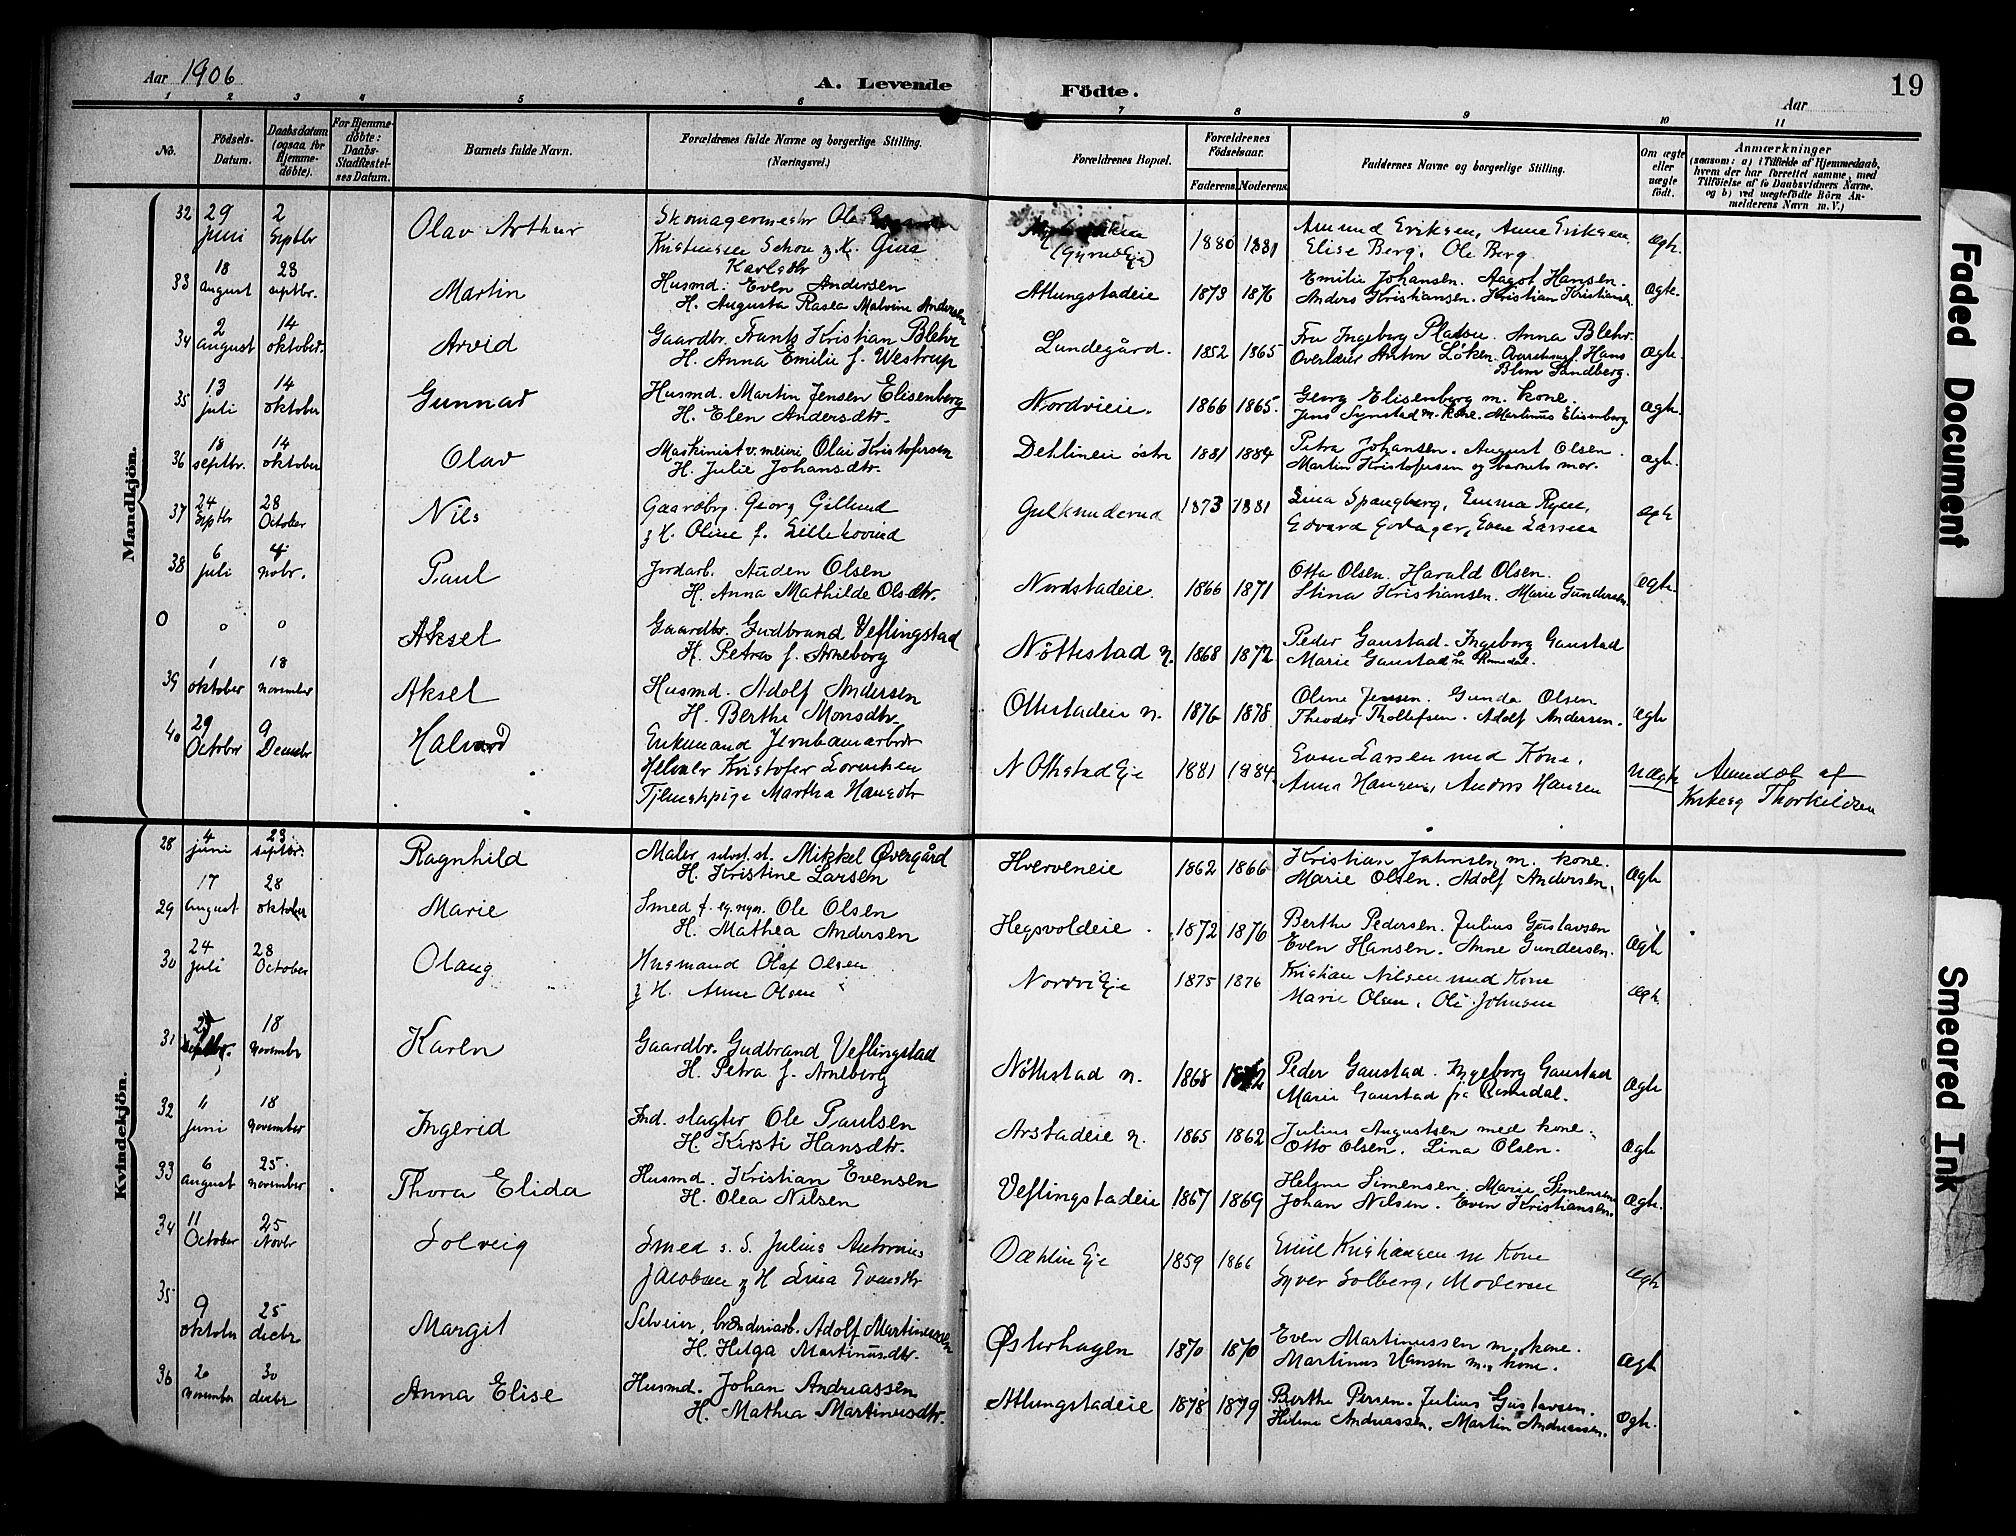 Aar 1906
A. Levende Födte.
Aar
19
1 2 3 4 5 6 7 8 9 10 11
No.
Födsels-Datum.
Daabsdatum (ogsaa for Hjemmedöbte).
For Hjemmedöbte: Daabs-Stadfæstelses Datum.
Barnets fulde Navn.
Forældrenes fulde Navne og borgerlige Stilling.
(Næringsvei.)
Forældrenes Bopæl.
Forældrenes Födselsaar.
Faderens. Moderens.
Faddernes Navne og borgerlige Stilling.
Om ægte eller uægte födt.
Anmærkninger
(saasom: a) i Tilfælde af Hjemmedaab, hvem der har forrettet samme, med Tilföielse af to Daabsvidners Navne, og b) ved uægtefödte Börn Anmelderens Navn m. V.)
Mandkjön.
32 29 juni 2 Septbr Olav Arthur
Skomagermester Ole
Kristensen Schou & H.
Karlsdtr
1880 1881
Amund Eriksen, Anne Eriksen,
Elise Berg, Ole Berg
ægte.
33 18 august 23 septbr. Martin
Husmd. Even Andersen
H. Augusta Rasea Malvine Andersen
Atlungstadeie 1873 1876
Emilie Johansen. Aagot Hansen.
Anders Kristiansen. Kristian Kristiansen
ægte.
34 2 august 14 oktober. Arvid
Gaardbr. Frants Kristian Blehr
H. Anna Emilie f. Westrup
Lundegård. 1852 1865
Fru Ingeborg Pladsen. Anna Blehr.
Overlærer Anton Löken. Hans
Blom Sandberg.
Ægte.
35 13 juli 14 oktober Gunnar
Husmd. Martin Jensen Elisenberg
H. Elen Andersdtr.
Nordvieie. 1866 1865.
Georg Elisenberg m. kone.
Jens Synstad m. kone. Martinus Elisenberg
Ægte.
36 18 septbr. 14 oktober Olav
Maskinist v. meieri Olai Kristofersen
H. Julie Johansdtr.
Dehlineie østre 1881 1884
Petra Johansen. August Olsen.
Martin Kristofersen og barnets mor.
ægte.
37 24 Septbr 28 October Nils
Gaardbrg. Georg Gillund
& H. Oline f. Lillehovind
Gulknuderud 1873 1881
Lina Spangberg, Emma Ryen,
Edvard Godager, Even Larsen
ægte
38 6 juli 4 nobr. Paul
Jordarb. Auden Olsen
H. Anna Mathilde Olsdtr.
Nordstadeie. 1866 1871
Otto Olsen. Harald Olsen.
Stina Kristiansen. Marie Gundersen.
Ægte.
0 0 0 Aksel
Gaardbr. Gudbrand Veflingstad
H. Petra f. Arneberg
Nöttestad n. 1868 1872
Peder Gaustad. Ingeborg Gaustad
Marie Gaustad fra Romedal.
39 1 oktober 18 november Aksel
Husmd. Adolf Andersen
H. Berthe Monsdtr.
Ottestadeie n. 1876 1878
Oline Jensen. Gunda Olsen
Theodor Thollefsen. Adolf Andersen.
ægte
40 29 October 9 Decmbr Halvard
Enkemand Jernbanearbeider
Helmer Kristofer Lorentsen
Tjenestepige Martha Hansdtr
N Ottestad Eje 1881 1884
Even Larsen med Kone,
Anna Hansen, Anders Hansen
Uægte
Anmeldt af
Kirkesg Thorkildsen
Kvindekjön.
28 4 juni 23 septbr. Ragnhild
Maler selvst. st. Mikkel Øvergård
H. Kristine Larsen
Hverveneie 1862 1866
Kristian Johnsen m. kone.
Marie Olsen. Adolf Andersen.
Ægte
29 17 august 28 oktober Marie
Smed f. eg. regn. Ole Olsen
H. Mathea Andersen
Hegsvoldeie. 1872 1876
Berthe Pedersen. Julius Gustavsen
Even Hansen. Anne Gundersen.
Ægte
30 24 juli 28 October Olaug
Husmand Olaf Olsen
& H. Anne Olsen
Nordvi Eje 1875 1876
Kristian Nilsen med Kone
Marie Olsen, Ole Johnsen
ægte.
31 25 septbr. 18 november Karen
Gaardbr. Gudbrand Veflingstad
H. Petra f. Arneberg
Nöttestad n. 1868 1872
Peder Gaustad. Ingeborg Gaustad
Marie Gaustad fra Romedal.
Ægte
32 11 juni 18 november Ingerid
Ind. slagter Ole Paulsen
H. Kirsti Hansdtr.
Arstadeie n. 1865 1862
Julius Augustsen med kone.
Otto Olsen. Lina Olsen.
Ægte
33 6 august 25. november Thora Elida
Husmd. Kristian Evensen
H. Olea Nilsen
Veflingstadeie 1867 1869
Helene Simensen. Marie Simensen
Johan Nilsen. Even Kristiansen.
Ægte.
34 11 October 25 Novbr Solveig
Smed s. S. Julius Antonius
Jacobsen & H Lina Evensdtr
Dæhlin Eje 1859 1866
Emil Kristiansen m Kone
Syver Solberg, Moderen
Ægte
35 9 oktober 25 decbr Margit
Selveier, brænderiarb. Adolf Martinussen
H. Helga Martinusdtr.
Østerhagen 1870 1870
Even Martinussen m. kone.
Martinus Hansen m. kone.
Ægte
36 20 november 30 decbr Anna Elise
Husmd. Johan Andreassen
H. Mathea Martinusdtr.
Atlungstadeie 1878 1879
Berthe Persen. Julius Gustavsen.
Helene Andreassen. Martin Andreassen.
Ægte.
Faded Document
Smeared Ink